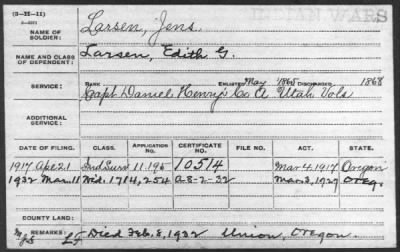 (3-II-11)
INDIAN WARS
NAME OF SOLDIER: Larsen, Jens.
NAME AND CLASS OF DEPENDENT: Larsen, Edith G.
SERVICE: RANK ENLISTED May 1865 DISCHARGED 1868
Capt Daniel Henrys Co A Utah Vols
ADDITIONAL SERVICE:
DATE OF FILING. CLASS. APPLICATION NO. CERTIFICATE NO. FILE NO. ACT. STATE.
1917 Apr 21 Ind Surv 11.195 10514 Mar 4, 1917 Oregon
1932 Mar 11 Wid. 1714,254 A-8-2-32 Mar 3, 1927 Oreg.
COUNTY LAND:
REMARKS: Died Feb. 8, 1932 Union, Oregon.